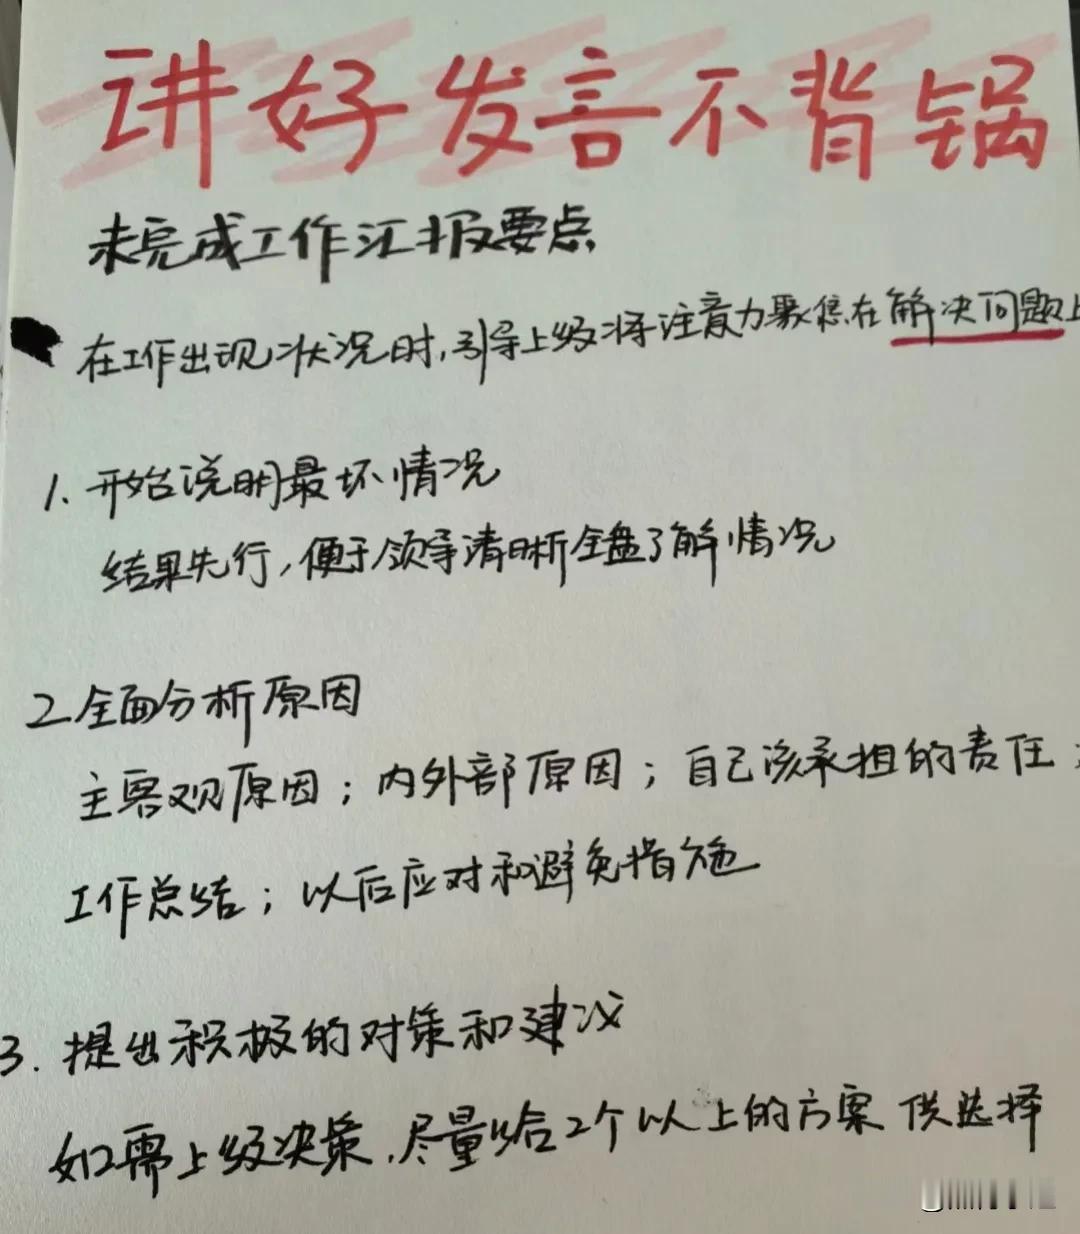 讲好发言不背锅
未完成工作汇报要点
在工作出现状况时,引导上级将注意力聚焦在解决问题上
1. 开始说明最坏情况
结果先行,便于领导清晰全盘了解情况
2 全面分析原因
主客观原因;内外部原因;自己该承担的责任;
工作总结;以后应对和避免措施
3. 提出积极的对策和建议
如需上级决策,尽量给2个以上的方案供选择